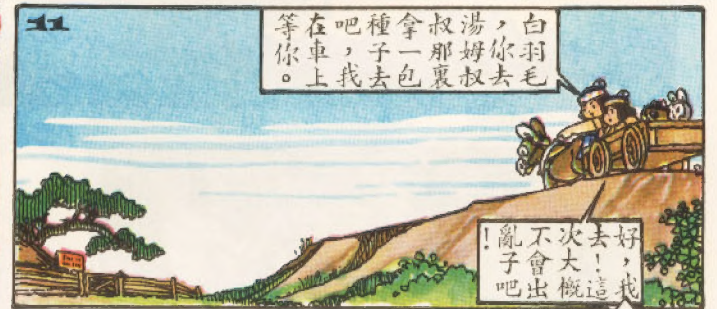 11
白羽毛
，你去
湯姆叔
叔那裏
拿一包
種子去
吧，我
在車上
等你。
好，我
去！這
次大概
不會出
亂子吧
！